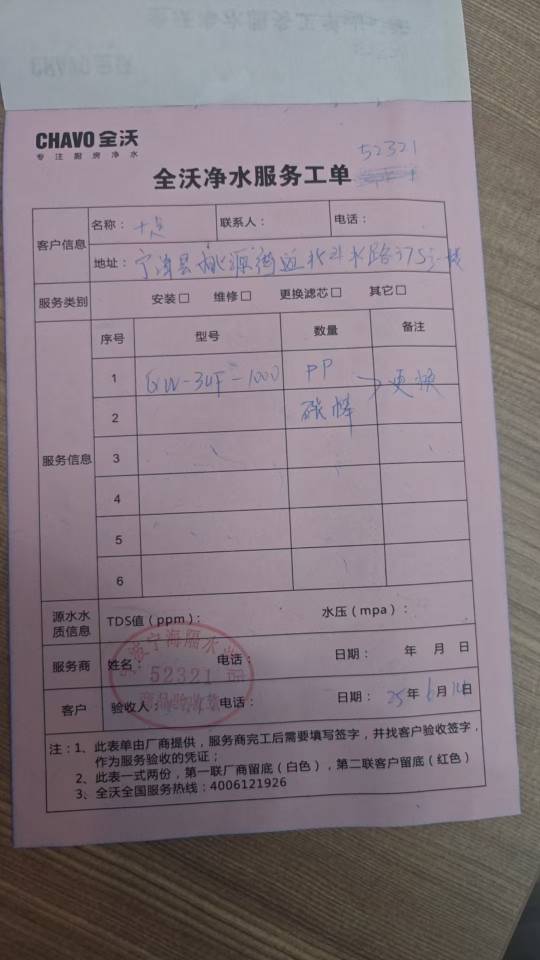 CHAVO 全沃
专注厨房净水
52321
全沃净水服务工单
客户信息 名称： 联系人： 电话：
地址：宁海县桃源街道北斗北路375号
服务类别 安装□ 维修□ 更换滤芯□ 其它□
服务信息 序号 型号 数量 备注
1 QW-3UF-1000 PP
更换
2 碳棒
3
4
5
6
源水水质信息 TDS值（ppm）： 水压（mpa）：
服务商 姓名： 电话： 日期： 年 月 日
52321
商品验收
客户 验收人： 电话： 日期：25年6月 日
注：1、此表单由厂商提供，服务商完工后需要填写签字，并找客户验收签字，
作为服务验收的凭证；
2、此表一式两份，第一联厂商留底（白色），第二联客户留底（红色）
3、全沃全国服务热线：4006121926